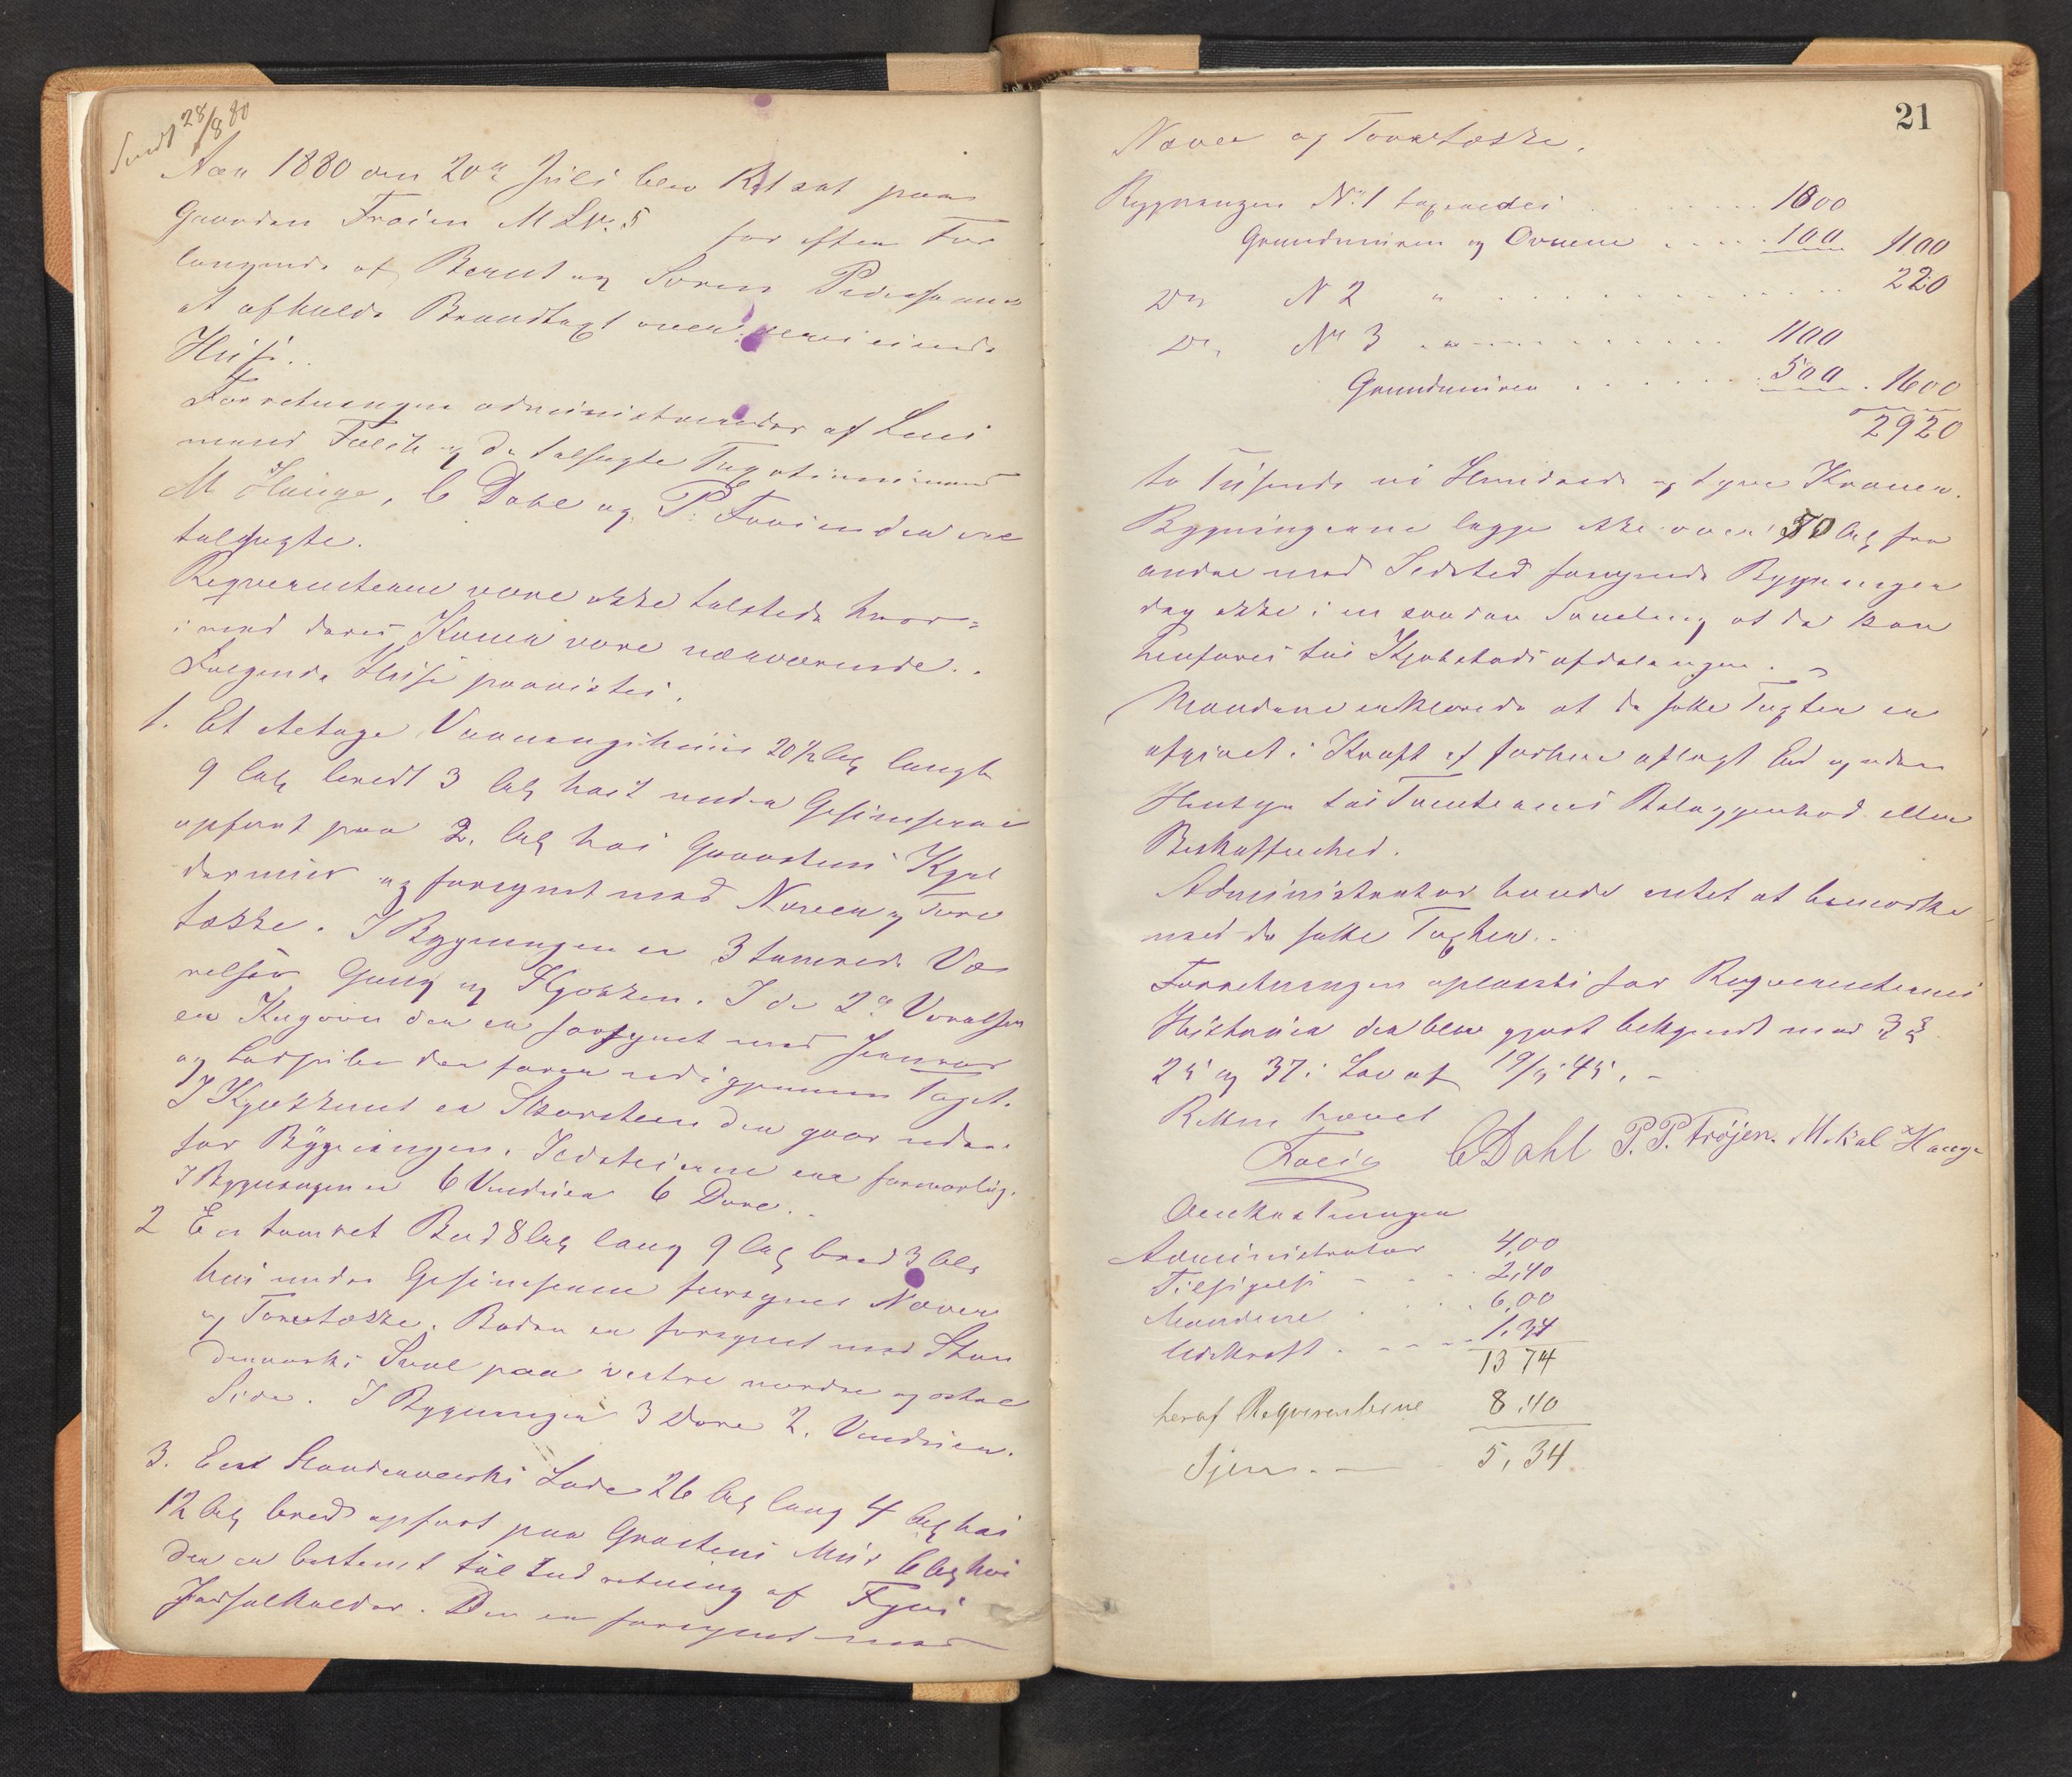 Sendt 28/8 80
Aar 1880 den 20de Juli blev Ret sat paa
Gaarden Troien M Lr. 5 for efter For
langende af Bernt og Soren Pedersønner
at afholde Brandtaxt over deres eiende
Huse.
Forretningen administreredes af Lens
mand Falch og de tilsagte Taxationsmænd
M Hauge, C Dahl og P. Troien der var
tilsagte.
Reqvirenterne vare ikke tilstede hvor=
imod deres Koner vare nærværende.
Følgende Huse paavistes.
1. Et etetage Vaaningshuus 20½ Al langt
9 Al bredt 3 Al høit under Gesimserne
opført paa 2. Al høi Graasteens Kjel
dermuur og forsynet med Næver og Torv
tække. I Bygningen er 3 tømrede Væ
relser Gang og Kjøkken. I de 2de Værelser
er Kogovn der er forsynet med Jernrør
og Ladpiber der fører ud igjennem Taget.
I Kjøkkenet er Skorsteen der gaar uden
for Bygningen. Ildstederne ere forsvarlig.
I Bygningen er 6 Vinduer 6 Døre.
2 En tømret Bud 8 Al lang 9 Al bred 3 Al
høi under Gesimserne forsynet Næver
og Torvetække. Boden er forsynet med Stan
deværks Sval paa vestre nordre og østre
Side. I Bygningen 3 Døre 2. Vinduer.
3. En Standeværks Lade 26 Al lang 4 Al høi
12 Al bred opført paa Graasteens Muur 6 Al høi
der er bestemt til Indretning af Fjøs
Den er forsynet med
21
Næver og Torvetække.
Bygningen No 1 taxeredes . . . 1000
Grundmuren og Ovnene . . . . 100 1100
Do N 2 " . . . . . . 220
Do No 3 . . . . . . 1100
Grundmuren . . . . . 500 . 1600
2920
to Tusinde ni Hundrede og tyve Kroner.
Bygningerne ligge ikke over 50 Al fra
andre med Ildsted forsynede Bygninger
dog ikke i en saadan Samling at de kan
henføres til Kjøbstadsafdelingen.
Mændene erklærede at de satte Taxten er
afgivet i Kraft af forhen aflagt Eed og uden
Hensyn til Tomternes Beliggenhed eller
Beskaffenhed.
Administrator havde intet at bemærke
med de satte Taxter.
Forretningen oplæstes for Reqvirenternes
Hustruer der blev gjort bekjendt med §§
25 og 37 i Lov af 19/8 45. -
Retten hævet
Falch C Dahl P. P. Trøjen. Mikal Hauge
Omkostninger
Administrator 4,00
Tilsigelse - - - 2,40
Mændene . . . . 6,00
Udskrift . - - - 1,34
13 74
heraf Reqvirentene 8,40
Igjen. — 5,34